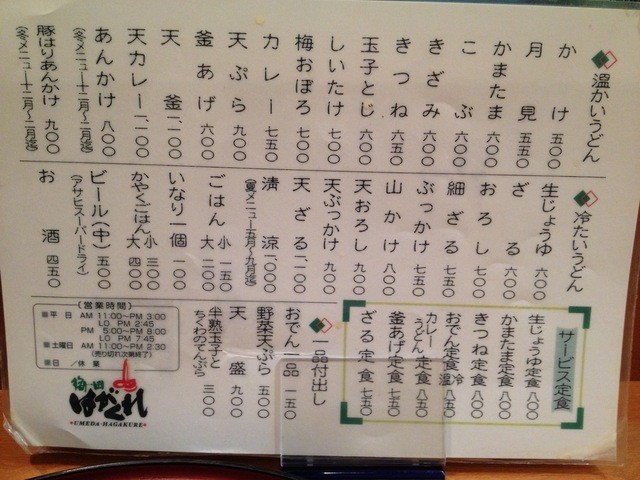 温かいうどん
かけ 五五〇
月見 五五〇
かまたま 六〇〇
こぶ 六〇〇
きざみ 六〇〇
きつね 六五〇
玉子とじ 六〇〇
しいたけ 七〇〇
梅おぼろ 七〇〇
カレー 七五〇
天ぷら 九〇〇
釜あげ 六〇〇
天釜 一一〇〇
天カレー 一一〇〇
あんかけ 八〇〇
(冬メニュー十二月〜二月迄)
豚はりあんかけ 九〇〇
(冬メニュー十二月〜二月迄)
冷たいうどん
生じょうゆ 六〇〇
ざる 六〇〇
おろし 七〇〇
細ざる 七五〇
ぶっかけ 七五〇
山かけ 八〇〇
天おろし 九〇〇
天ぶっかけ 九〇〇
天ざる 一一〇〇
清涼 一〇〇〇
(夏メニュー五月〜九月迄)
ごはん 小 一五〇
大 二〇〇
いなり一個 一〇〇
かやくごはん 小 三〇〇
大 四〇〇
ビール(中) 五〇〇
(アサヒスーパードライ)
お酒 四五〇
サービス定食
生じょうゆ定食 八〇〇
かまたま定食 八〇〇
きつね定食 八〇〇
おでん定食 冷温 八五〇
カレーうどん定食 八五〇
釜あげ定食 七五〇
ざる定食 七五〇
一品付出し
おでん一品 一五〇
野菜天ぷら 五〇〇
天盛 九〇〇
半熟玉子とちくわのてんぷら 三〇〇
(営業時間)
※平日 AM 11:00〜PM 3:00
LO PM 2:45
PM 5:00〜PM 8:00
LO PM 7:45
※土曜日 AM 11:00〜PM 2:30
(売り切れ次第終了)
※日/休業
梅田
はがくれ
•UMEDA-HAGAKURE•